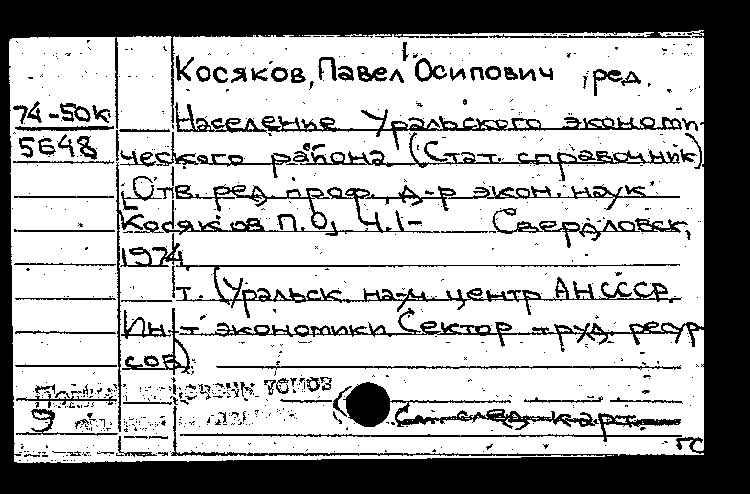 Косяков, Павел Осипович, ред.
74-50к
5648
Население Уральского экономи-
ческого района (Стат. справочник)
[Отв. ред. проф., д-р экон. наук
Косяков П.О.] Ч.1- Свердловск,
1974
т. (Уральск. науч. центр АН СССР.
Ин-т экономики. Сектор труд. ресур-
сов)
томов
9
См. след. карт.
ГС